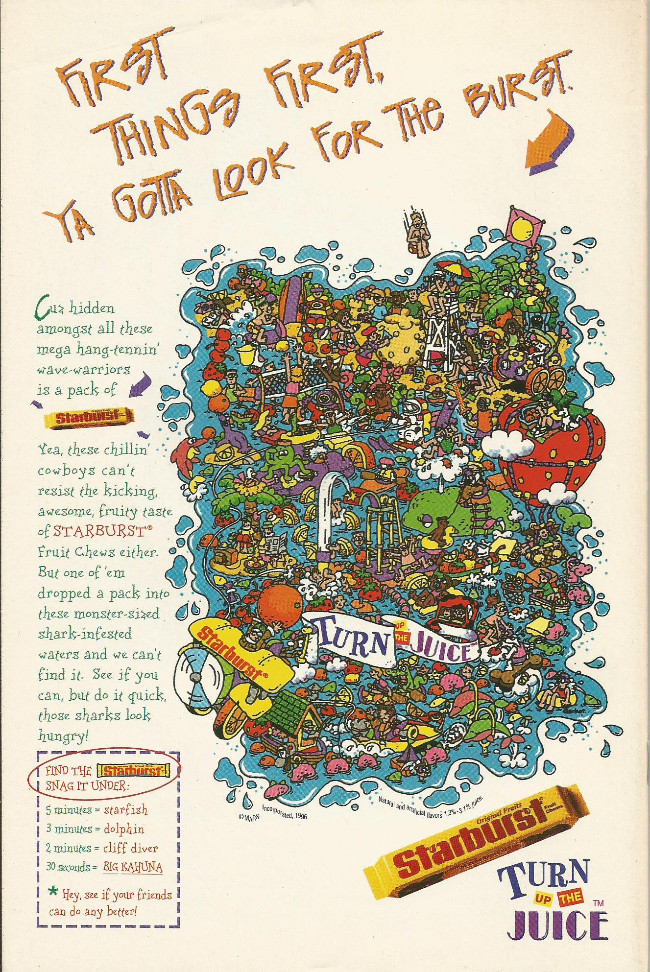 FIRST
THINGS FIRST,
YA GOTTA LOOK FOR THE BURST.
Cuz hidden
amongst all these
mega hang-tennin'
wave-warriors
is a pack of
Starburst
Yea, these chillin'
cowboys can't
resist the kicking,
awesome, fruity taste
of STARBURST®
Fruit Chews either.
But one of 'em
dropped a pack into
these monster-sized
shark-infested
waters and we can't
find it. See if you
can, but do it quick,
those sharks look
hungry!
Starburst®
TURN UP THE JUICE
FIND THE Starburst
SNAG IT UNDER:
5 minutes = starfish
3 minutes = dolphin
2 minutes = cliff diver
30 seconds = BIG KAHUNA
* Hey, see if your friends
can do any better!
Incorporated, 1996
Natural and artificial flavors
Original Fruits
Starburst
Fruit Chews
TURN
UP THE
JUICE™